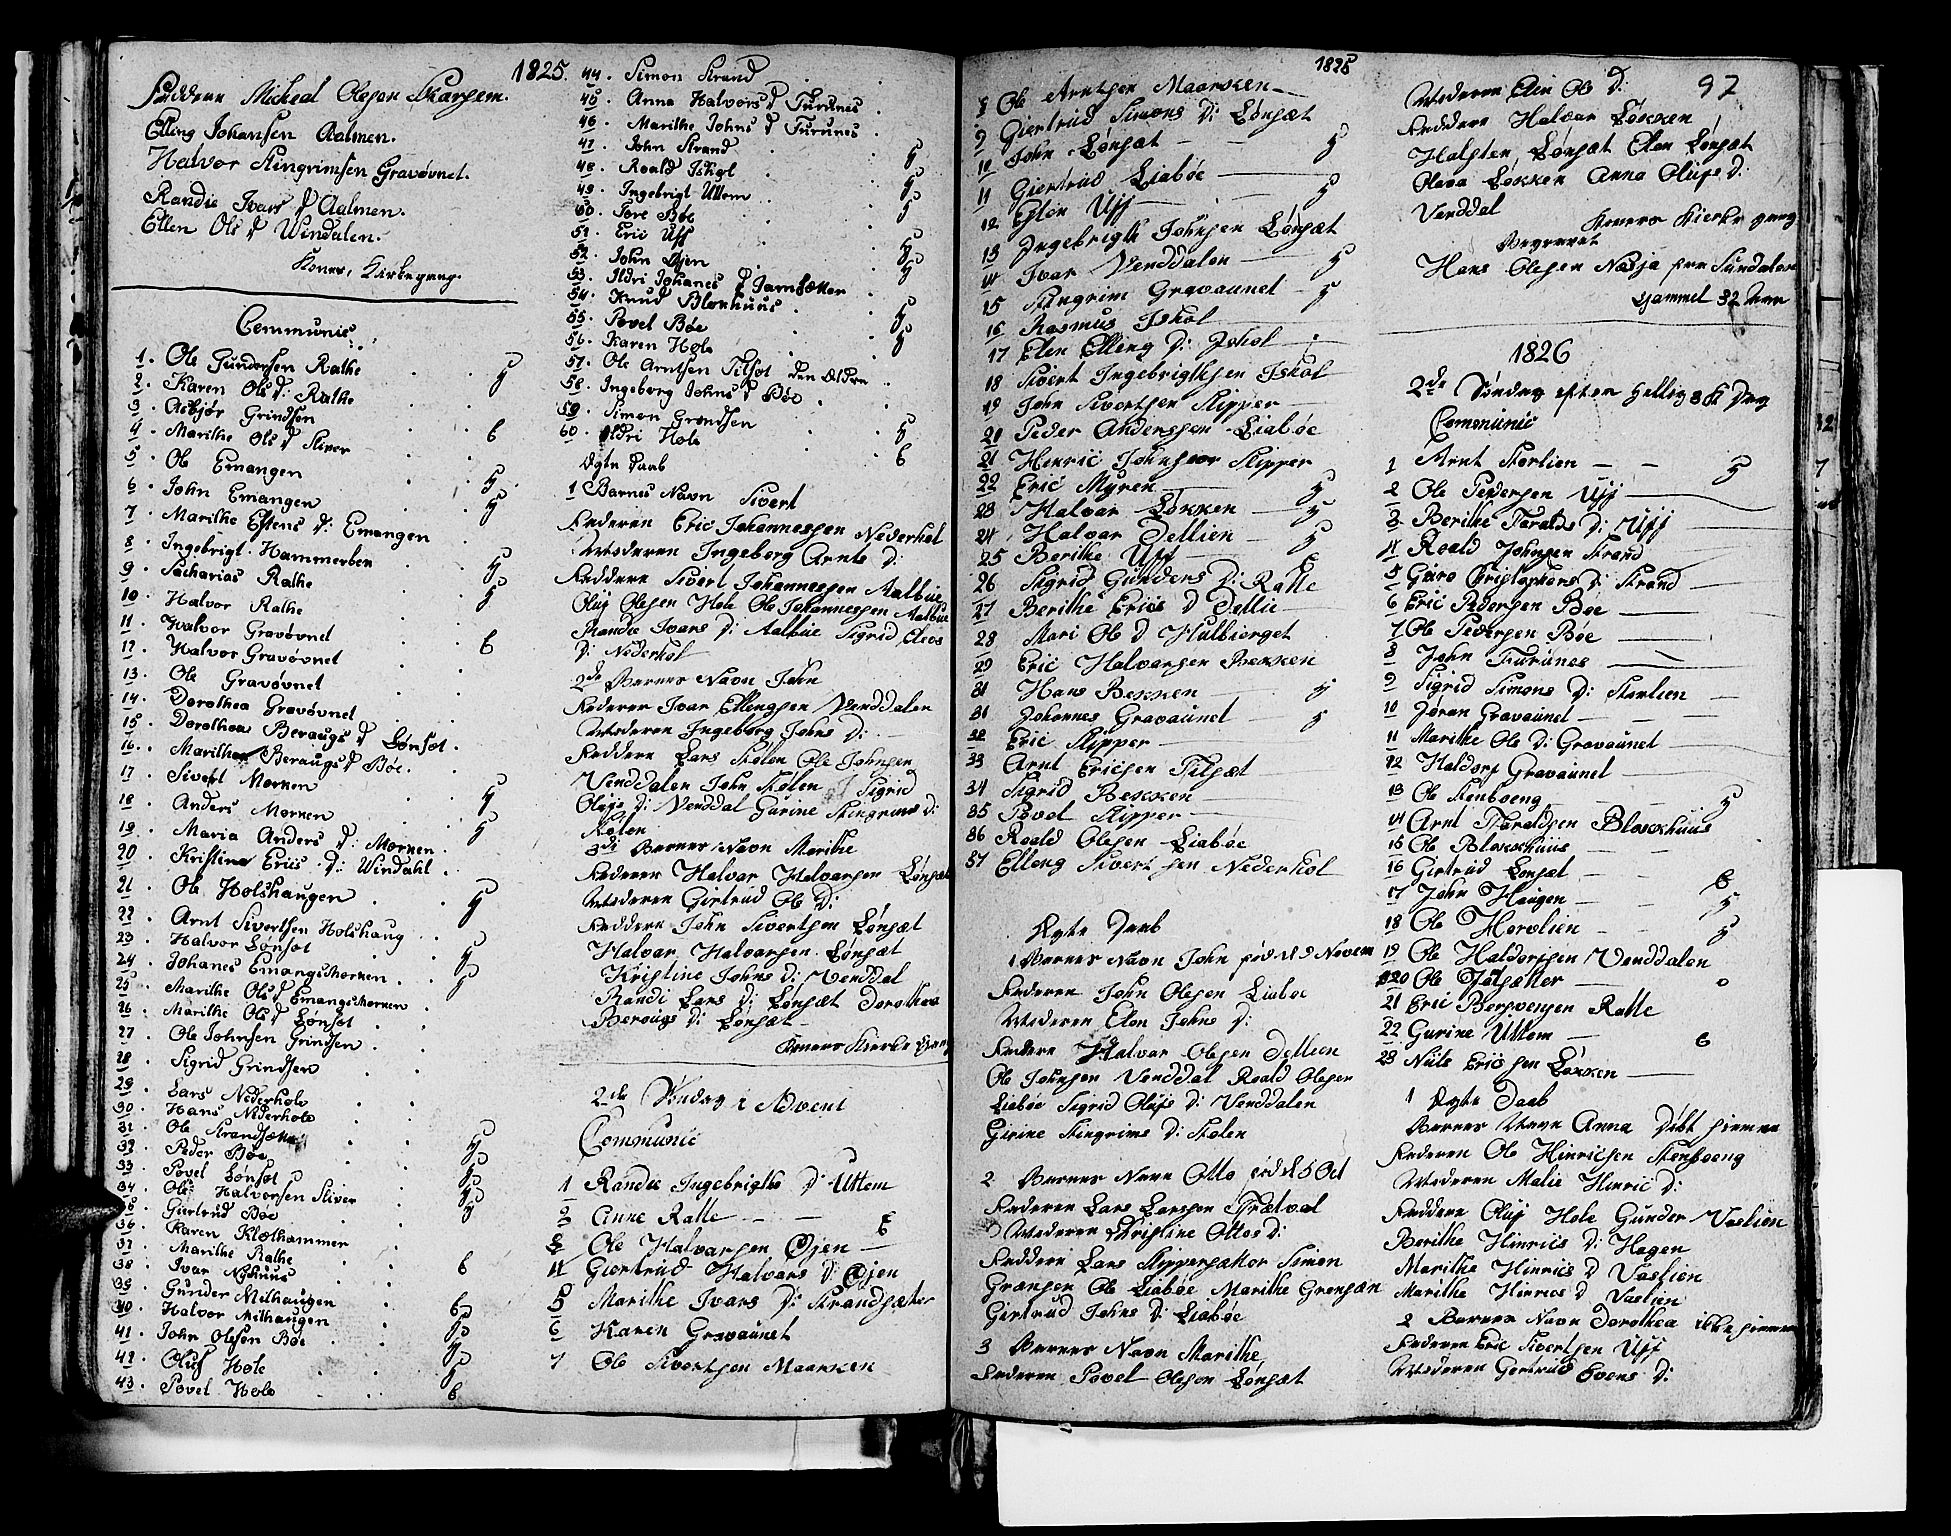 1825.
Faddere Micheal Olesen Skarsem.
Elling Johansen Aalmen.
Halvor Stingrimsen Gravøvnet.
Randie Ivars D Aalmen.
Ellen Ols D Windalen.
Koner, Kirkegang.
Communic:
1. Ole Gundersen Rathe
2. Karen Ols D: Rathe
3. Asbjør Grindsen
4. Marithe Ols D Sliver
5. Ole Emangen
6. John Emangen
7. Marithe Estens D: Emangen
8. Ingebrigt Hammerben
9. Sacharias Rathe
10. Halvor Rathe
11. Halvor Gravøvnet
12. Halvor Gravøvnet
13. Ole Gravøvnet
14. Dorothea Gravøvnet
15. Dorothea Beraugs D Lønset.
16. Marithe Beraugs D Bøe.
17. Sivert Mornen
18. Anders Mornen
19. Maria Anders D: Mornen
20. Kristina Erics D: Windahl
21. Ole Holshaugen
22. Arnt Sivertsen Holshaug
23. Halvor Lønset
24. Johanes Emangsmornen
25. Marithe Ols D Emangsmornen
26. Marithe Ols D Lønset
27. Ole Johnsen Grindsen
28. Sigrid Grindsen
29. Lars Nederhole
30. Hans Nederhole
31. Ole Strandsætter
32. Peder Bøe
33. Povel Lønset
34. Ole Halvorsen Sliver
35. Giertrud Bøe
36. Karen Klethammer
37. Marithe Rathe
38. Ivar Nyhuus
39. Gunder Milhaugen
40. Halvor Milhaugen
41. John Olesen Bøe
42. Oluf Hole
43. Povel Hole
44. Simon Strand
45. Anna Halvors D Furunes
46. Marithe Johns D Furunes
47. John Strand
48. Roald Ishol
49. Ingebrigt Uttem
50. Tore Bøe
51. Eric Uff
52. John Øien
53. Ildri Johanes D Jamtsætter
54. Knud Blokhuus
55. Povel Bøe
56. Karen Hole
57. Ole Arntsen Tilset den Eldre
58. Ingeborg Johns D Bøe
59. Simon Grendsen
60. Ildri Hole
Ægte Daab
1 Barnes Navn Sivert
Faderen Eric Johannessen Nederhol
Moderen Ingeborg Arnts D:
Faddere Sivert Johannessen Aalbue
Oluf Olesen Hole Ole Johannessen Aalbue
Randie Ivars D: Aalbue Sigrid
D: Nederhol
2de Barnes Navn John
Faderen Ivar Ellengsen Venddalen
Moderen Ingeborg Johns D:
Faddere Lars Stølen Ole Johnsen
Venddalen John Stølen Sigrid
Olufs D: Venddal Gurine Stingrims D:
Stølen
3di Barnes Navn Marithe
Faderen Halvar Halvarsen Lønsæt
Moderen Giertrud Ole D:
Faddere John Sivertsen Lønsæt
Halvar Halvarsen Lønsæt
Kristine Johns D: Venddal
Randi Lars D: Lønsæt Dorothea
Berougs D: Lønsæt
Koners Kierke gang
2de Søndag i Advent
Communic
1 Randie Ingebrigths D: Uttem
2 Anne Ratte
3 Ole Halvarsen Øjen
4 Giertrud Halvars D: Øjen
5 Marithe Ivars D: Strandsæter
6 Karen Gravaunet
7 Ole Sivertsen Maarsken
1825
97
8 Ole Arntsen Maarsken
9 Giertrud Simons D: Lønsæt
10 John Lønsæt
11 Giertrud Liabøe
12 Esten Uff
13 Ingebrigth Johnsen Lønsæt
14 Ivar Venddalen
15 Stingrim Gravaunet
16 Rasmus Ishol
17 Elen Elling D: Ishol
18 Sivert Ingebrigthsen Ishol
19 John Sivertsen Skipper
20 Peder Anderssen Liabøe
21 Henric Johnsen Skipper
22 Eric Myren
23 Halvar Løkken
24 Halvar Dellien
25 Berithe Uff
26 Sigrid Gunders D: Ratte
27 Berithe Erics D Dellie
28 Mari Ole D Hulbierget
29 Eric Halvarsen Bekken
31 Hans Bekken
31 Johannes Gravaunet
32 Eric Skipper
33 Arnt Ericsen Tilsæt
34 Sigrid Bekken
35 Povel Skipper
36 Roald Olesen Liabøe
37 Elleng Sivertsen Nederhol
Ægte Daab
1 Barnes Navn John
Faderen John Olesen Liabøe
Moderen Elen Johns D:
Faddere Halvar Olesen Dellien
Ole Johnsen Venddal Roald Olesen
Liabøe Sigrid Olufs D: Venddalen
Girine Stingrims D: Stølen
2 Barnes Navn Otto fød d 5 Oct
Faderen Lars Larssen
Moderen Kristine Ottos D:
Faddere Lars Skippersætter Simon
Grænsen Ole Liabøe Marithe Grensæn
Giertrud Johns D: Liabøe
3 Barnes Navn Marithe
Faderen Povel Olesen Lønsæt
Moderen Elen Ole D:
Faddere Halvar Løkken
Halsten Lønsæt Elen Lønsæt
Olava Løkken Anna Olufs D:
Venddal
Koners Kierke gang
Begravet
Hans Olesen Nasja fra Sundalen
Gammel 32 Aar
1826
2de Søndag efter Hellig 3 K Dag
Communic
1 Arnt Storlien
2 Ole Pedersen Uff
3 Berithe Taralds D: Uff
4 Roald Johnsen Strand
5 Guro Christophers D: Strand
6 Eric Pedersen Bøe
7 Ole Pedersen Bøe
8 John Furunes
9 Sigrid Simons D: Storlien
10 Jøran Gravaunet
11 Marithe Ole D: Gravaunet
12 Haldors Gravaunet
13 Ole Stenboeng
14 Arnt Taraldsen Blokkhuus
15 Ole Blokkhuus
16 Girtrud Lønsæt
17 John Haugen
18 Ole Horvlien
19 Ole Haldorssen Venddalen
20 Ole Jølsætter
21 Eric Bersvensen Ratte
22 Gurine Uttem
23 Niils Ericssen Løkken
1 Ægte Daab
Barnes Navn Anna Døbt hjemme
Faderen Ole Hinricsen Stenboeng
Moderen Malie Hinric D:
Faddere Oluf Hole Gunder Vaslien
Berithe Hinrics D: Hagen
Marithe Hinrics D Vaslien
Marithe Hinrics D Vaslien
2 Barnes Navn Dorothea ikke hjemme
Faderen Eric Sivertsen Uff
Moderen Gertrud Evens D: